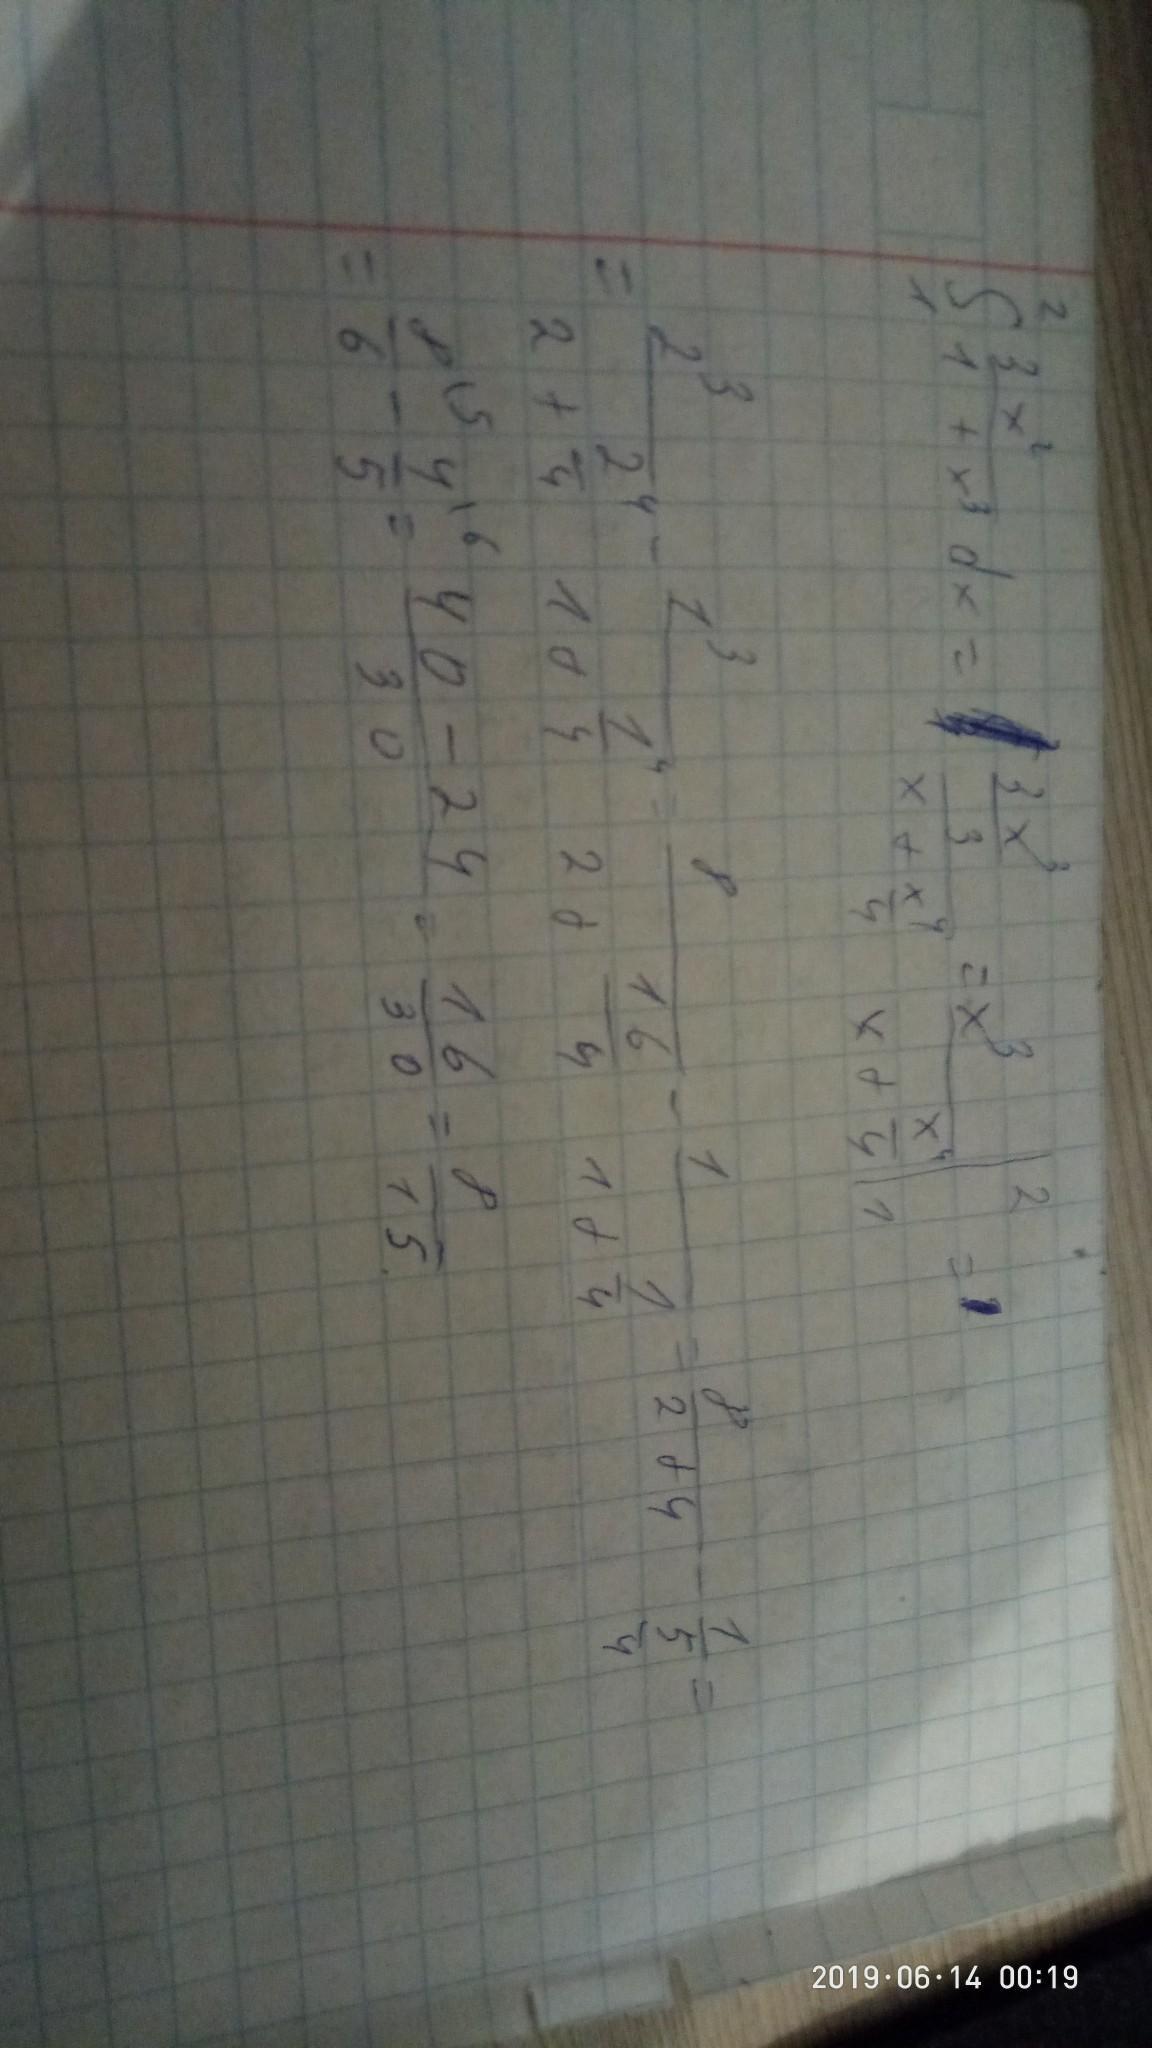 ∫₁² 3x²/(1 + x³) dx = (3x³/3)/(x + x⁴/4) = x³/(x + x⁴/4) |₁² =
= 2³/(2 + 2⁴/4) - 1³/(1 + 1⁴/4) = 8/(2 + 16/4) - 1/(1 + 1/4) = 8/(2 + 4) - 1/(5/4) =
= 8\5/6 - 4\6/5 = (40 - 24)/30 = 16/30 = 8/15.
2019·06·14 00:19